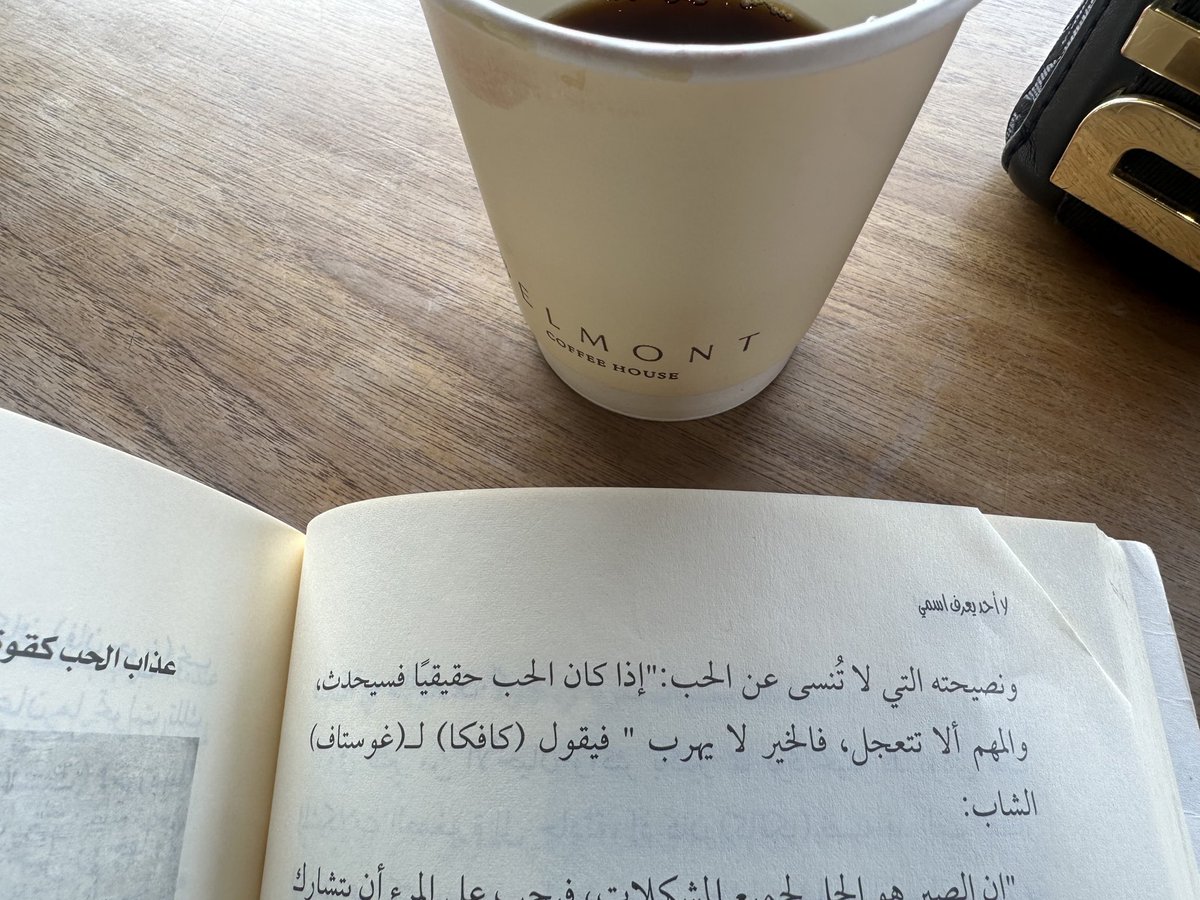 ELMONT
COFFEE HOUSE
لا أحد يعرف اسمي
ونصيحته التي لا تُنسى عن الحب:"إذا كان الحب حقيقيًا فسيحدث،
والمهم ألا تتعجل، فالخير لا يهرب " فيقول (كافكا) لـ(غوستاف)
الشاب:
"إن الصبر هو الحل لجميع المشكلات، فيجب على المرء أن يتشارك
عذاب الحب كقوة